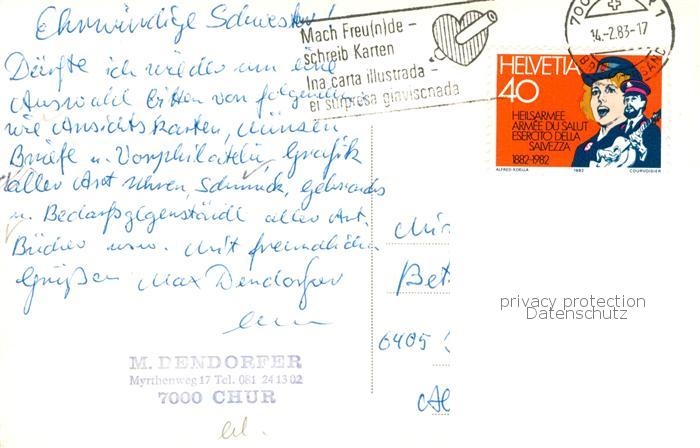 Ehrwürdige Schwester!
Dürfte ich wieder um eine
Auswahl bitten von folgenden
wie Ansichtskarten, Münzen
Briefe u. Vorphilatelie, Grafik
aller Art Uhren, Schmuck, Gebrauchs
u. Bedarfsgegenstände aller Art,
Bücher usw. Mit freundlichen
Grüßen Max Dendorfer
M. DENDORFER
Myrthenweg 17 Tel. 081 24 13 02
7000 CHUR
Mach Freu(n)de –
schreib Karten
Ina carta illustrada –
ei surpresa giavischada
700
1
14.-2.83-17
HELVETIA
40
HEILSARMEE
ARMÉE DU SALUT
ESERCITO DELLA
SALVEZZA
1882-1982
ALFRED KOELLA 1982 COURVOISIER
Bet
6405
privacy protection
Datenschutz